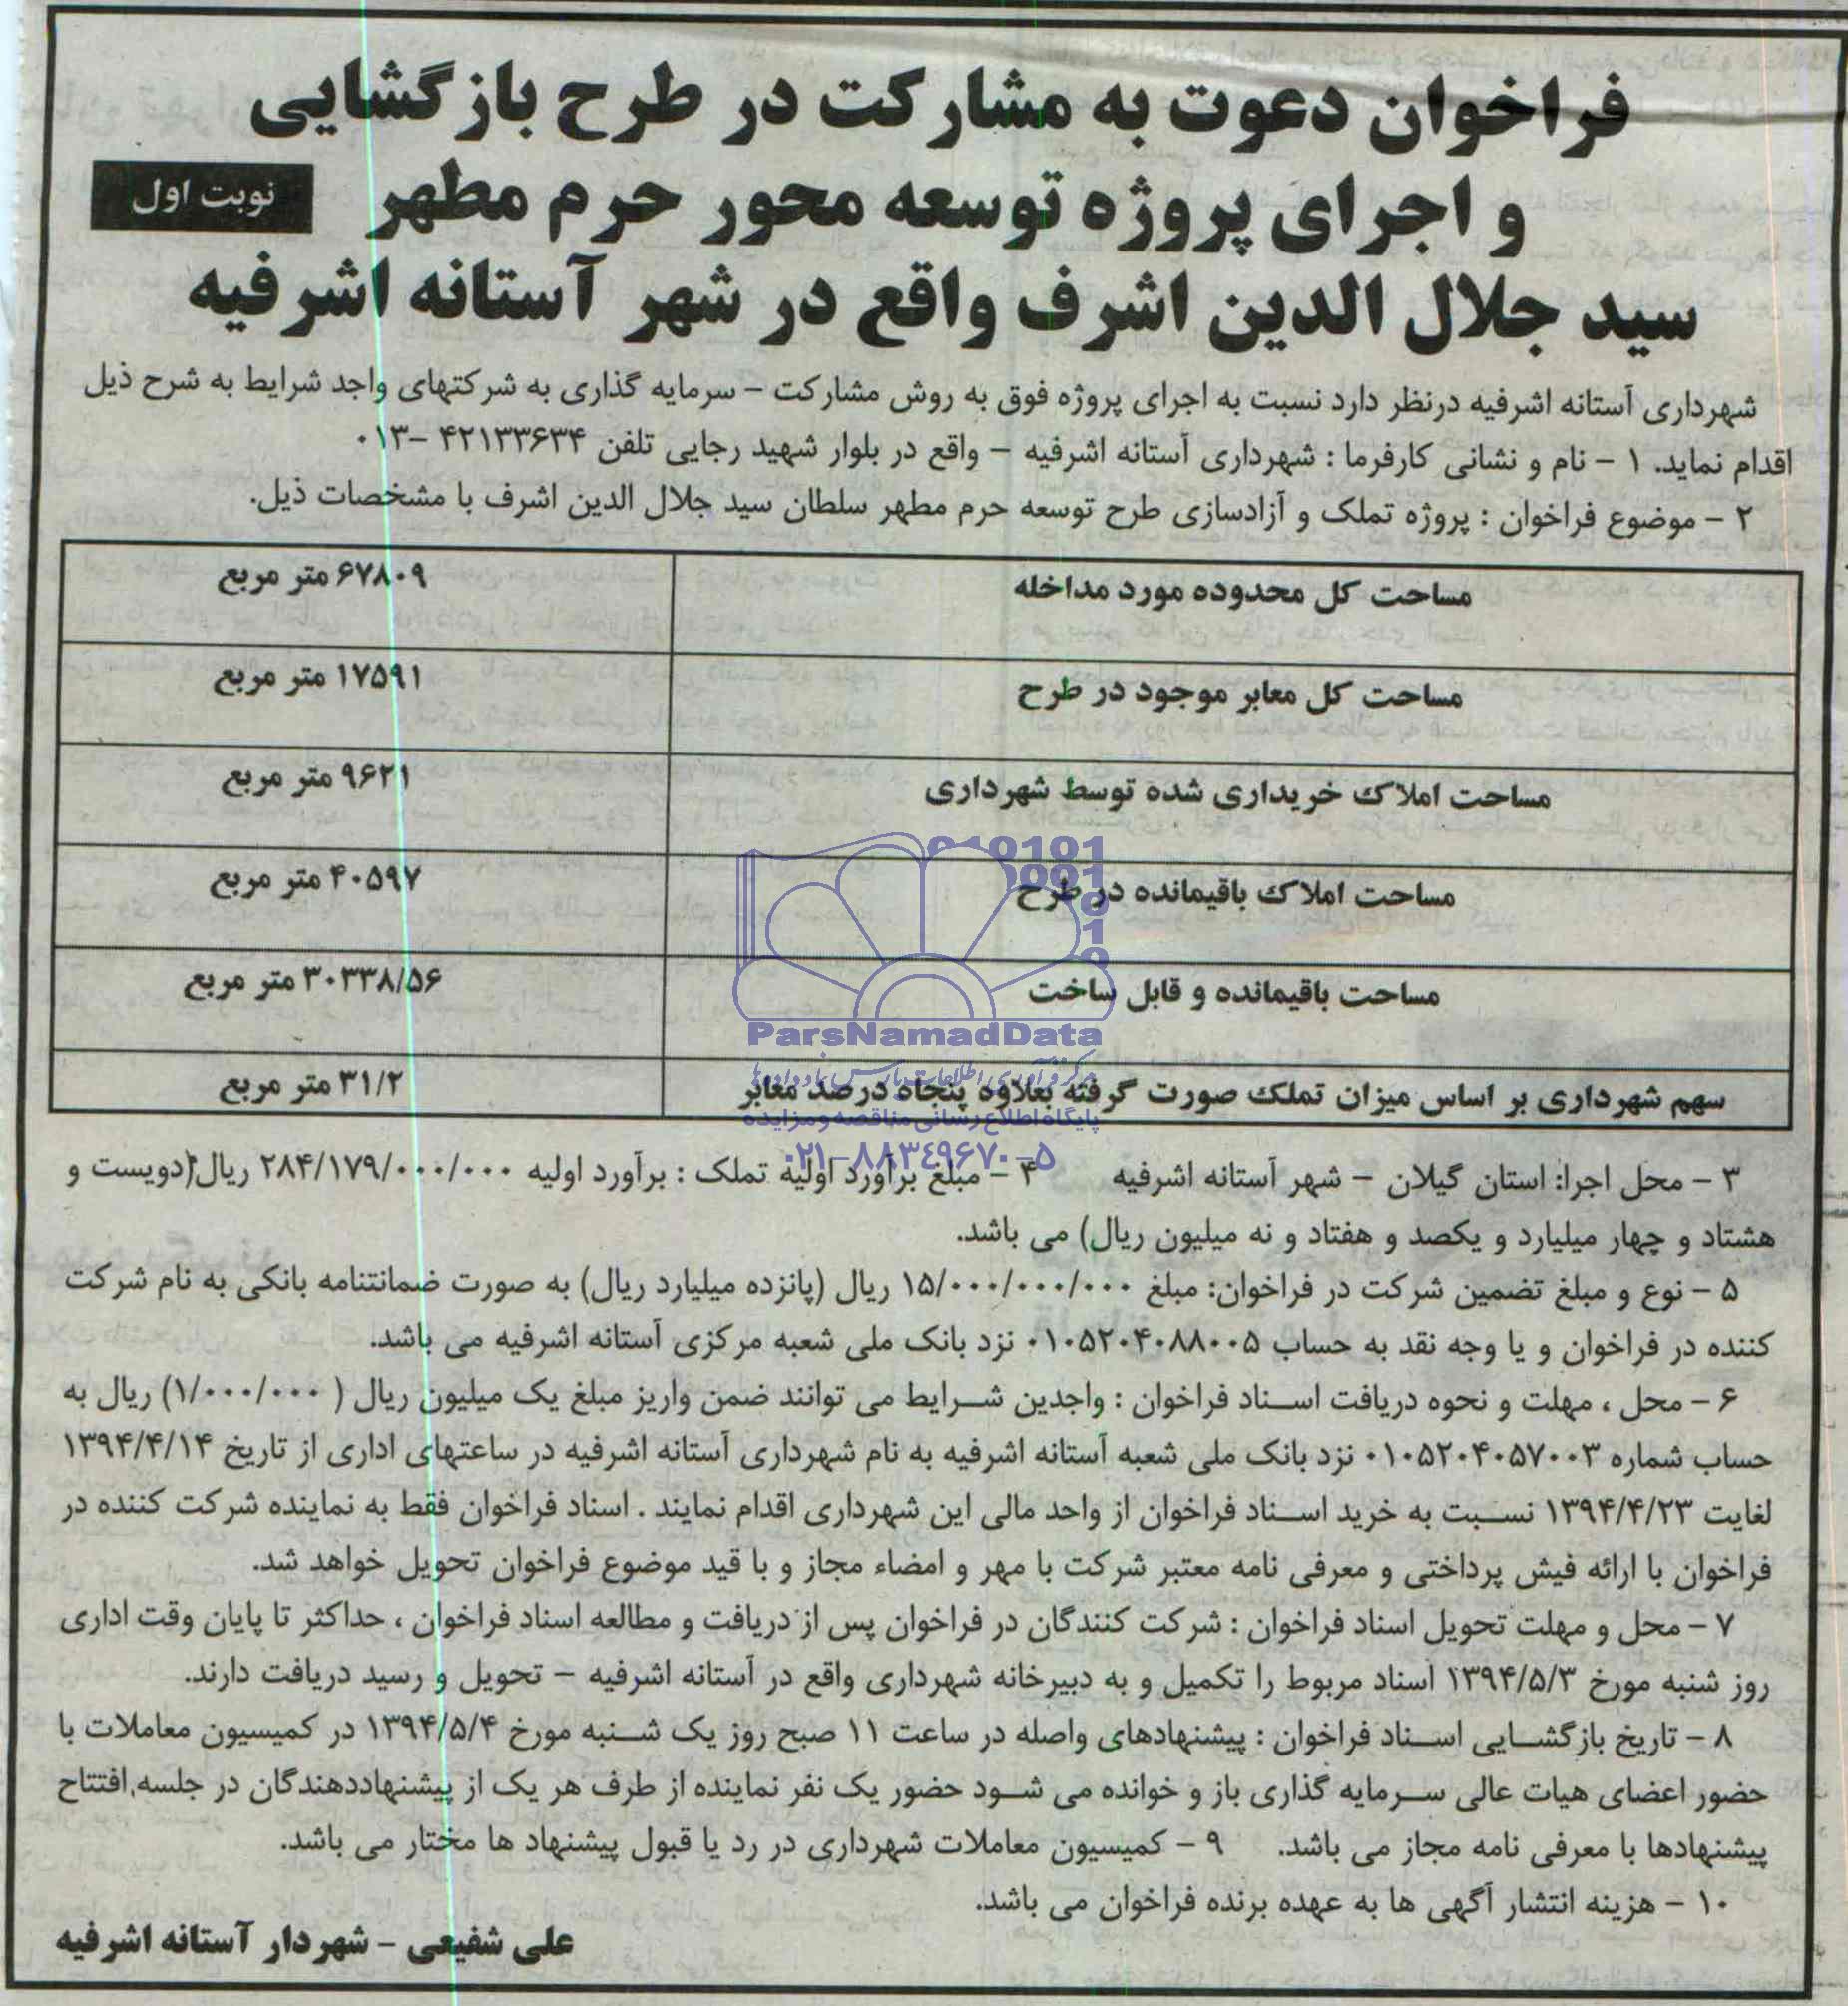 فراخوان دعوت به مشارکت در طرح بازگشایی
و اجرای پروژه توسعه محور حرم مطهر
نوبت اول
سید جلال الدین اشرف واقع در شهر آستانه اشرفیه
شهرداری آستانه اشرفیه درنظر دارد نسبت به اجرای پروژه فوق به روش مشارکت – سرمایه گذاری به شرکتهای واجد شرایط به شرح ذیل
اقدام نماید. ۱ – نام و نشانی کارفرما : شهرداری آستانه اشرفیه – واقع در بلوار شهید رجایی تلفن ۴۲۱۳۳۶۳۴ –۰۱۳
۲ – موضوع فراخوان : پروژه تملک و آزادسازی طرح توسعه حرم مطهر سلطان سید جلال الدین اشرف با مشخصات ذیل.
مساحت کل محدوده مورد مداخله ۶۷۸۰۹ متر مربع
مساحت کل معابر موجود در طرح ۱۷۵۹۱ متر مربع
مساحت املاک خریداری شده توسط شهرداری ۹۶۲۱ متر مربع
مساحت املاک باقیمانده در طرح ۴۰۵۹۷ متر مربع
مساحت باقیمانده و قابل ساخت ۳۰۳۳۸/۵۶ متر مربع
سهم شهرداری بر اساس میزان تملک صورت گرفته بعلاوه پنجاه درصد معابر ۳۱/۲ متر مربع
010101
0001
0
1
0
ParsNamadData
مرکز فرآوری اطلاعات پارس نماد داده ها
پایگاه اطلاع رسانی مناقصه و مزایده
۰۲۱–۸۸۳۴۹۶۷۰–۵
۳ – محل اجرا: استان گیلان – شهر آستانه اشرفیه ۴ – مبلغ برآورد اولیه تملک : برآورد اولیه ۲۸۴/۱۷۹/۰۰۰/۰۰۰ ریال (دویست و
هشتاد و چهار میلیارد و یکصد و هفتاد و نه میلیون ریال) می باشد.
۵ – نوع و مبلغ تضمین شرکت در فراخوان: مبلغ ۱۵/۰۰۰/۰۰۰/۰۰۰ ریال (پانزده میلیارد ریال) به صورت ضمانتنامه بانکی به نام شرکت
کننده در فراخوان و یا وجه نقد به حساب ۰۱۰۵۲۰۴۰۸۸۰۰۵ نزد بانک ملی شعبه مرکزی آستانه اشرفیه می باشد.
۶ – محل ، مهلت و نحوه دریافت اسناد فراخوان : واجدین شرایط می توانند ضمن واریز مبلغ یک میلیون ریال ( ۱/۰۰۰/۰۰۰) ریال به
حساب شماره ۰۱۰۵۲۰۴۰۵۷۰۰۳ نزد بانک ملی شعبه آستانه اشرفیه به نام شهرداری آستانه اشرفیه در ساعتهای اداری از تاریخ ۱۳۹۴/۴/۱۴
لغایت ۱۳۹۴/۴/۲۳ نسبت به خرید اسناد فراخوان از واحد مالی این شهرداری اقدام نمایند . اسناد فراخوان فقط به نماینده شرکت کننده در
فراخوان با ارائه فیش پرداختی و معرفی نامه معتبر شرکت با مهر و امضاء مجاز و با قید موضوع فراخوان تحویل خواهد شد.
۷ – محل و مهلت تحویل اسناد فراخوان : شرکت کنندگان در فراخوان پس از دریافت و مطالعه اسناد فراخوان ، حداکثر تا پایان وقت اداری
روز شنبه مورخ ۱۳۹۴/۵/۳ اسناد مربوط را تکمیل و به دبیرخانه شهرداری واقع در آستانه اشرفیه – تحویل و رسید دریافت دارند.
۸ – تاریخ بازگشایی اسناد فراخوان : پیشنهادهای واصله در ساعت ۱۱ صبح روز یک شنبه مورخ ۱۳۹۴/۵/۴ در کمیسیون معاملات با
حضور اعضای هیات عالی سرمایه گذاری باز و خوانده می شود حضور یک نفر نماینده از طرف هر یک از پیشنهاددهندگان در جلسه افتتاح
پیشنهادها با معرفی نامه مجاز می باشد. ۹ – کمیسیون معاملات شهرداری در رد یا قبول پیشنهاد ها مختار می باشد.
۱۰ – هزینه انتشار آگهی ها به عهده برنده فراخوان می باشد.
علی شفیعی – شهردار آستانه اشرفیه